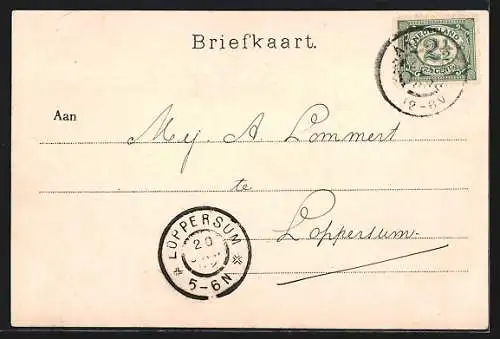 Briefkaart.
NEDERLAND
2½
CENT
12-8V
Aan
Mej. A Lommert
te
Loppersum.
LOPPERSUM
20
5-6N